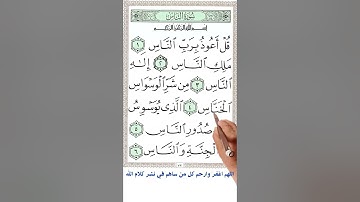 سُورَةُ النَّاسِ
بِسْمِ اللَّهِ الرَّحْمَٰنِ الرَّحِيمِ
قُلْ أَعُوذُ بِرَبِّ ٱلنَّاسِ ١
مَلِكِ ٱلنَّاسِ ٢ إِلَٰهِ
ٱلنَّاسِ ٣ مِن شَرِّ ٱلْوَسْوَاسِ
ٱلْخَنَّاسِ ٤ ٱلَّذِى يُوَسْوِسُ
صُدُورِ ٱلنَّاسِ ٥
ٱلْجِنَّةِ وَٱلنَّاسِ ٦
اللهم اغفر وارحم كل من ساهم في نشر كلام الله